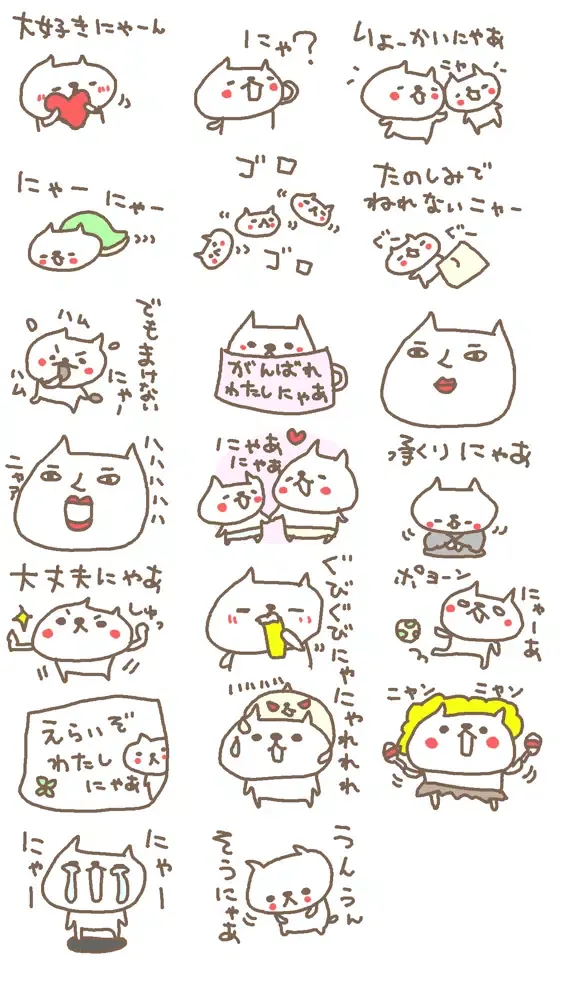 大好きにゃーん
にゃ？
りょーかいにゃあ
ニャ
にゃー
にゃー
ゴロ
ゴロ
たのしみで
ねれないニャー
ぐー
ぐー
ハム
ハム
でもまけない
にゃー
がんばれ
わたしにゃあ
ハハハハハ
ニャア
にゃあ
にゃあ
承くりにゃあ
大丈夫にゃあ
しゅっ
ぐびぐびにゃ
ポヨーン
にゃーあ
えらいぞ
わたし
にゃあ
にゃれれれ
ニャン
ニャン
にゃー
にゃー
うんうん
そうにゃあ